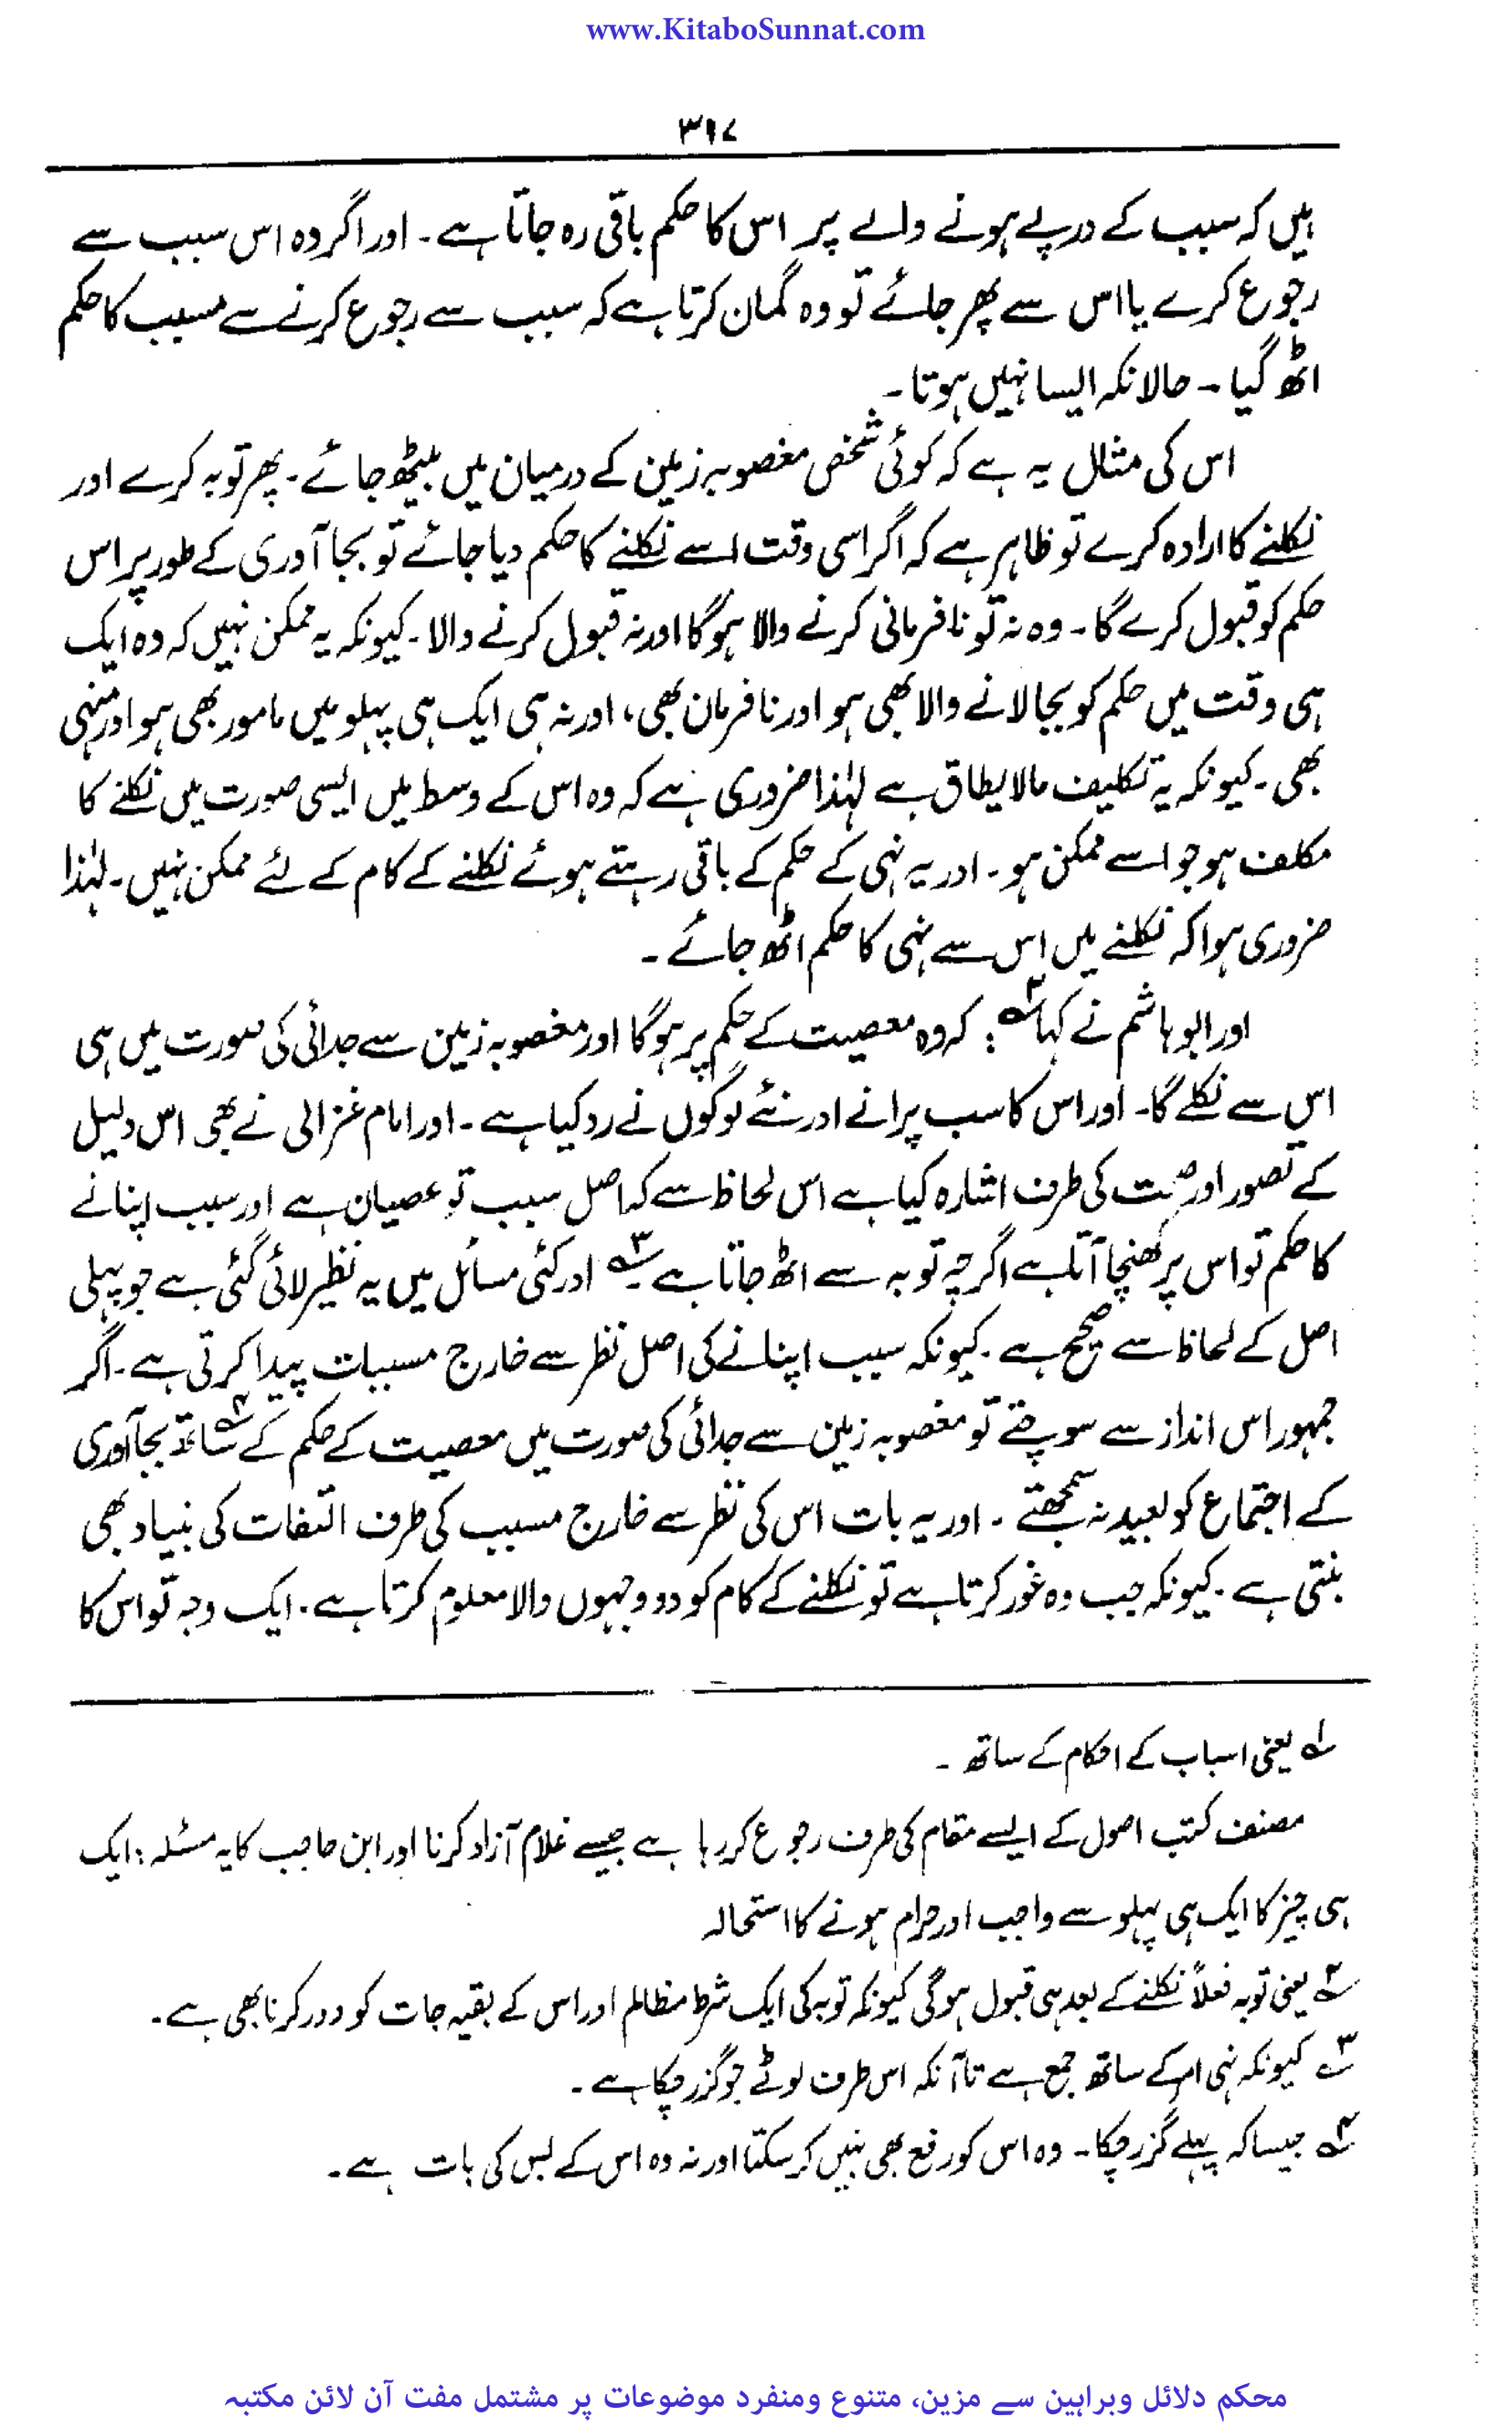 www.KitaboSunnat.com
۳۱۷
ہیں کہ سبب کے درپے ہونے والے پر اس کا حکم باقی رہ جاتا ہے۔ اور اگر وہ اس سبب سے
رجوع کرے یا اس سے پھر جائے تو وہ گمان کرتا ہے کہ سبب سے رجوع کرنے سے مسبب کا حکم
اٹھ گیا۔ حالانکہ ایسا نہیں ہوتا۔
اس کی مثال یہ ہے کہ کوئی شخص مغصوبہ زمین کے درمیان میں بیٹھ جائے۔ پھر توبہ کرے اور
نکلنے کا ارادہ کرے تو ظاہر ہے کہ اگر اسی وقت اسے نکلنے کا حکم دیا جائے تو بجا آوری کے طور پر اس
حکم کو قبول کرے گا۔ وہ نہ تو نافرمانی کرنے والا ہوگا اور نہ قبول کرنے والا۔ کیونکہ یہ ممکن نہیں کہ وہ ایک
ہی وقت میں حکم کو بجا لانے والا بھی ہو اور نافرمان بھی، اور نہ ہی ایک ہی پہلو میں مامور بھی ہو اور منہی
بھی۔ کیونکہ یہ تکلیف مالا یطاق ہے لہٰذا ضروری ہے کہ وہ اس کے وسط میں ایسی صورت میں نکلنے کا
مکلف ہو جو اسے ممکن ہو۔ اور یہ نہی کے حکم کے باقی رہتے ہوئے نکلنے کے کام کے لئے ممکن نہیں۔ لہٰذا
ضروری ہوا کہ نکلنے میں اس سے نہی کا حکم اٹھ جائے۔
اور ابو ہاشم نے کہا۲؎: کہ وہ معصیت کے حکم پر ہوگا اور مغصوبہ زمین سے جدائی کی صورت میں ہی
اس سے نکلے گا۔ اور اس کا سب پرانے اور نئے لوگوں نے رد کیا ہے۔ اور امام غزالی نے بھی اس دلیل
کے تصور اور صحت کی طرف اشارہ کیا ہے اس لحاظ سے کہ اصل سبب تو عصیان ہے اور سبب اپنانے
کا حکم تو اس پر کھنچا آتا ہے اگرچہ توبہ سے اٹھ جاتا ہے۳؎ اور کئی مسائل میں یہ نظیر لائی گئی ہے جو پہلی
اصل کے لحاظ سے صحیح ہے۔ کیونکہ سبب اپنانے کی اصل نظر سے خارج مسببات پیدا کرتی ہے۔ اگر
جمہور اس انداز سے سوچتے تو مغصوبہ زمین سے جدائی کی صورت میں معصیت کے حکم کے۴؎ ساتھ بجا آوری
کے اجتماع کو بعید نہ سمجھتے۔ اور یہ بات اس کی نظر سے خارج مسبب کی طرف التفات کی بنیاد بھی
بنتی ہے۔ کیونکہ جب وہ غور کرتا ہے تو نکلنے کے کام کو دو وجہوں والا معلوم کرتا ہے۔ ایک وجہ تو اس کا
۱؎ یعنی اسباب کے احکام کے ساتھ۔
مصنف کتب اصول کے ایسے مقام کی طرف رجوع کر رہا ہے جیسے غلام آزاد کرنا اور ابن حاجب کا یہ مسئلہ: ایک
ہی چیز کا ایک ہی پہلو سے واجب اور حرام ہونے کا استحالہ
۲؎ یعنی توبہ فعلاً نکلنے کے بعد ہی قبول ہوگی کیونکہ توبہ کی ایک شرط مظالم اور اس کے بقیہ جات کو دور کرنا بھی ہے۔
۳؎ کیونکہ نہی امر کے ساتھ جمع ہے تا آنکہ اس طرف لوٹے جو گزر چکا ہے۔
۴؎ جیسا کہ پہلے گزر چکا۔ وہ اس کو رفع بھی نہیں کر سکتا اور نہ وہ اس کے بس کی بات ہے۔
محکم دلائل وبراہین سے مزین، متنوع ومنفرد موضوعات پر مشتمل مفت آن لائن مکتبہ